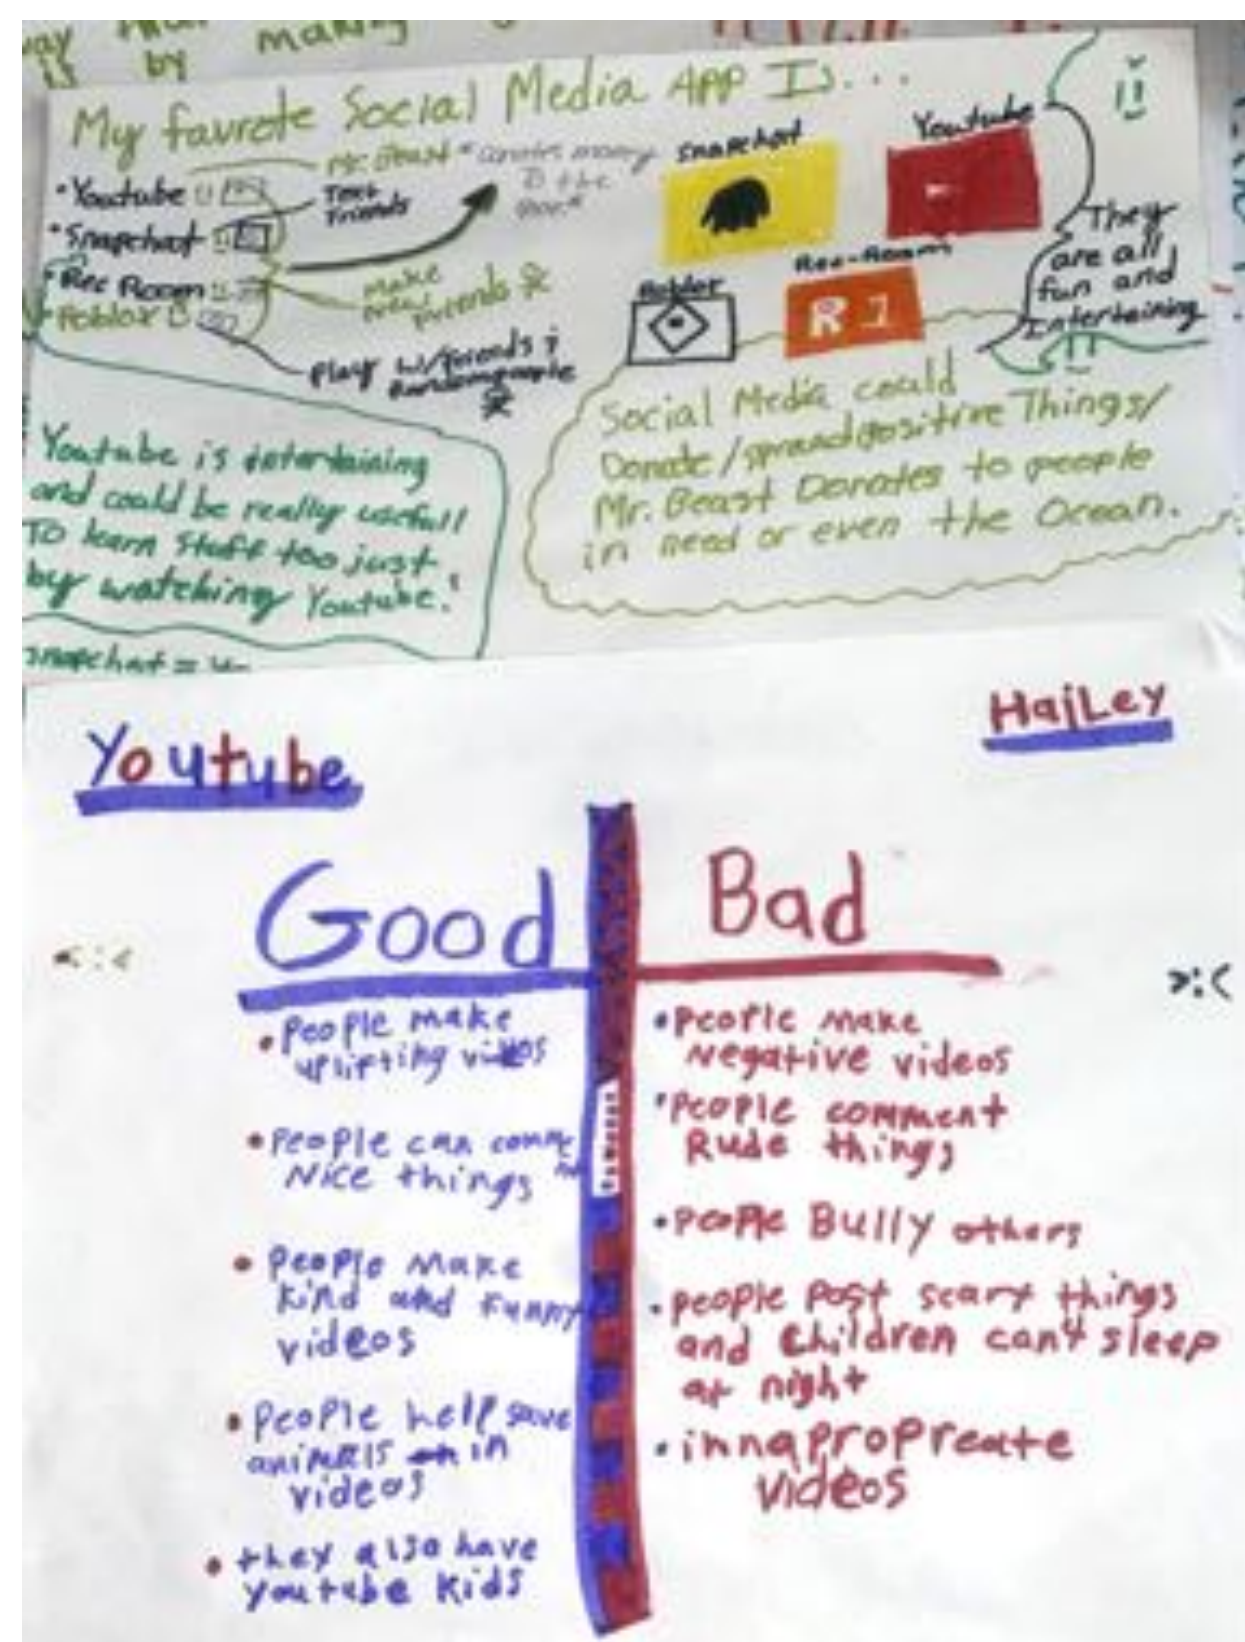 by making
is
My favrote Social Media APP Is...
Mr. Beast
money
to the
• Youtube
• Snapchat
• Rec Room
• Roblox
Text
Friends
Make
new
friends
Play w/friends &
Snapchat
Youtube
Roblox
Rec-Room
R
They
are all
fun and
Intertaining
Youtube is intertaining
and could be really usefull
To learn stuff too just
by watching Youtube!
Social Media could
Donate/spread positive Things/
Mr. Beast Donates to people
in need or even the Ocean.
Snapchat =
Youtube
HaiLey
Good
Bad
<:<
>:<
• People make
uplifting videos
• People can comme
nt
Nice things
• People Make
kind and funny
videos
• People help save
animals in
videos
• they also have
Youtube kids
• People make
Negative videos
• People comment
Rude things
• People Bully others
• people post scary things
and Children can't sleep
at night
• innapropreate
videos